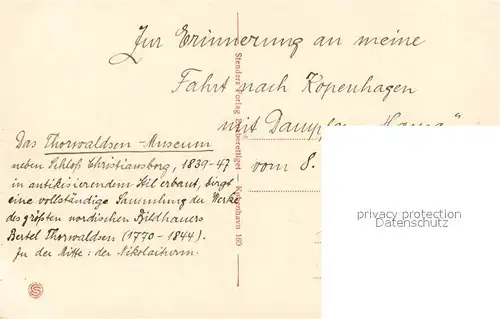 Zur Erinnerung an meine
Fahrt nach Kopenhagen
mit Dampfer
vom 8.
Das Thorwaldsen-Museum
neben Schloß Christiansborg, 1839-47
in antikisierendem Stil erbaut, birgt
eine vollständige Sammlung der Werke
des größten nordischen Bildhauers
Bertel Thorwaldsen (1770-1844).
In der Mitte: der Nikolaiturm.
Stenders Forlag Eneberettiget — København 169
privacy protection
watermark
S